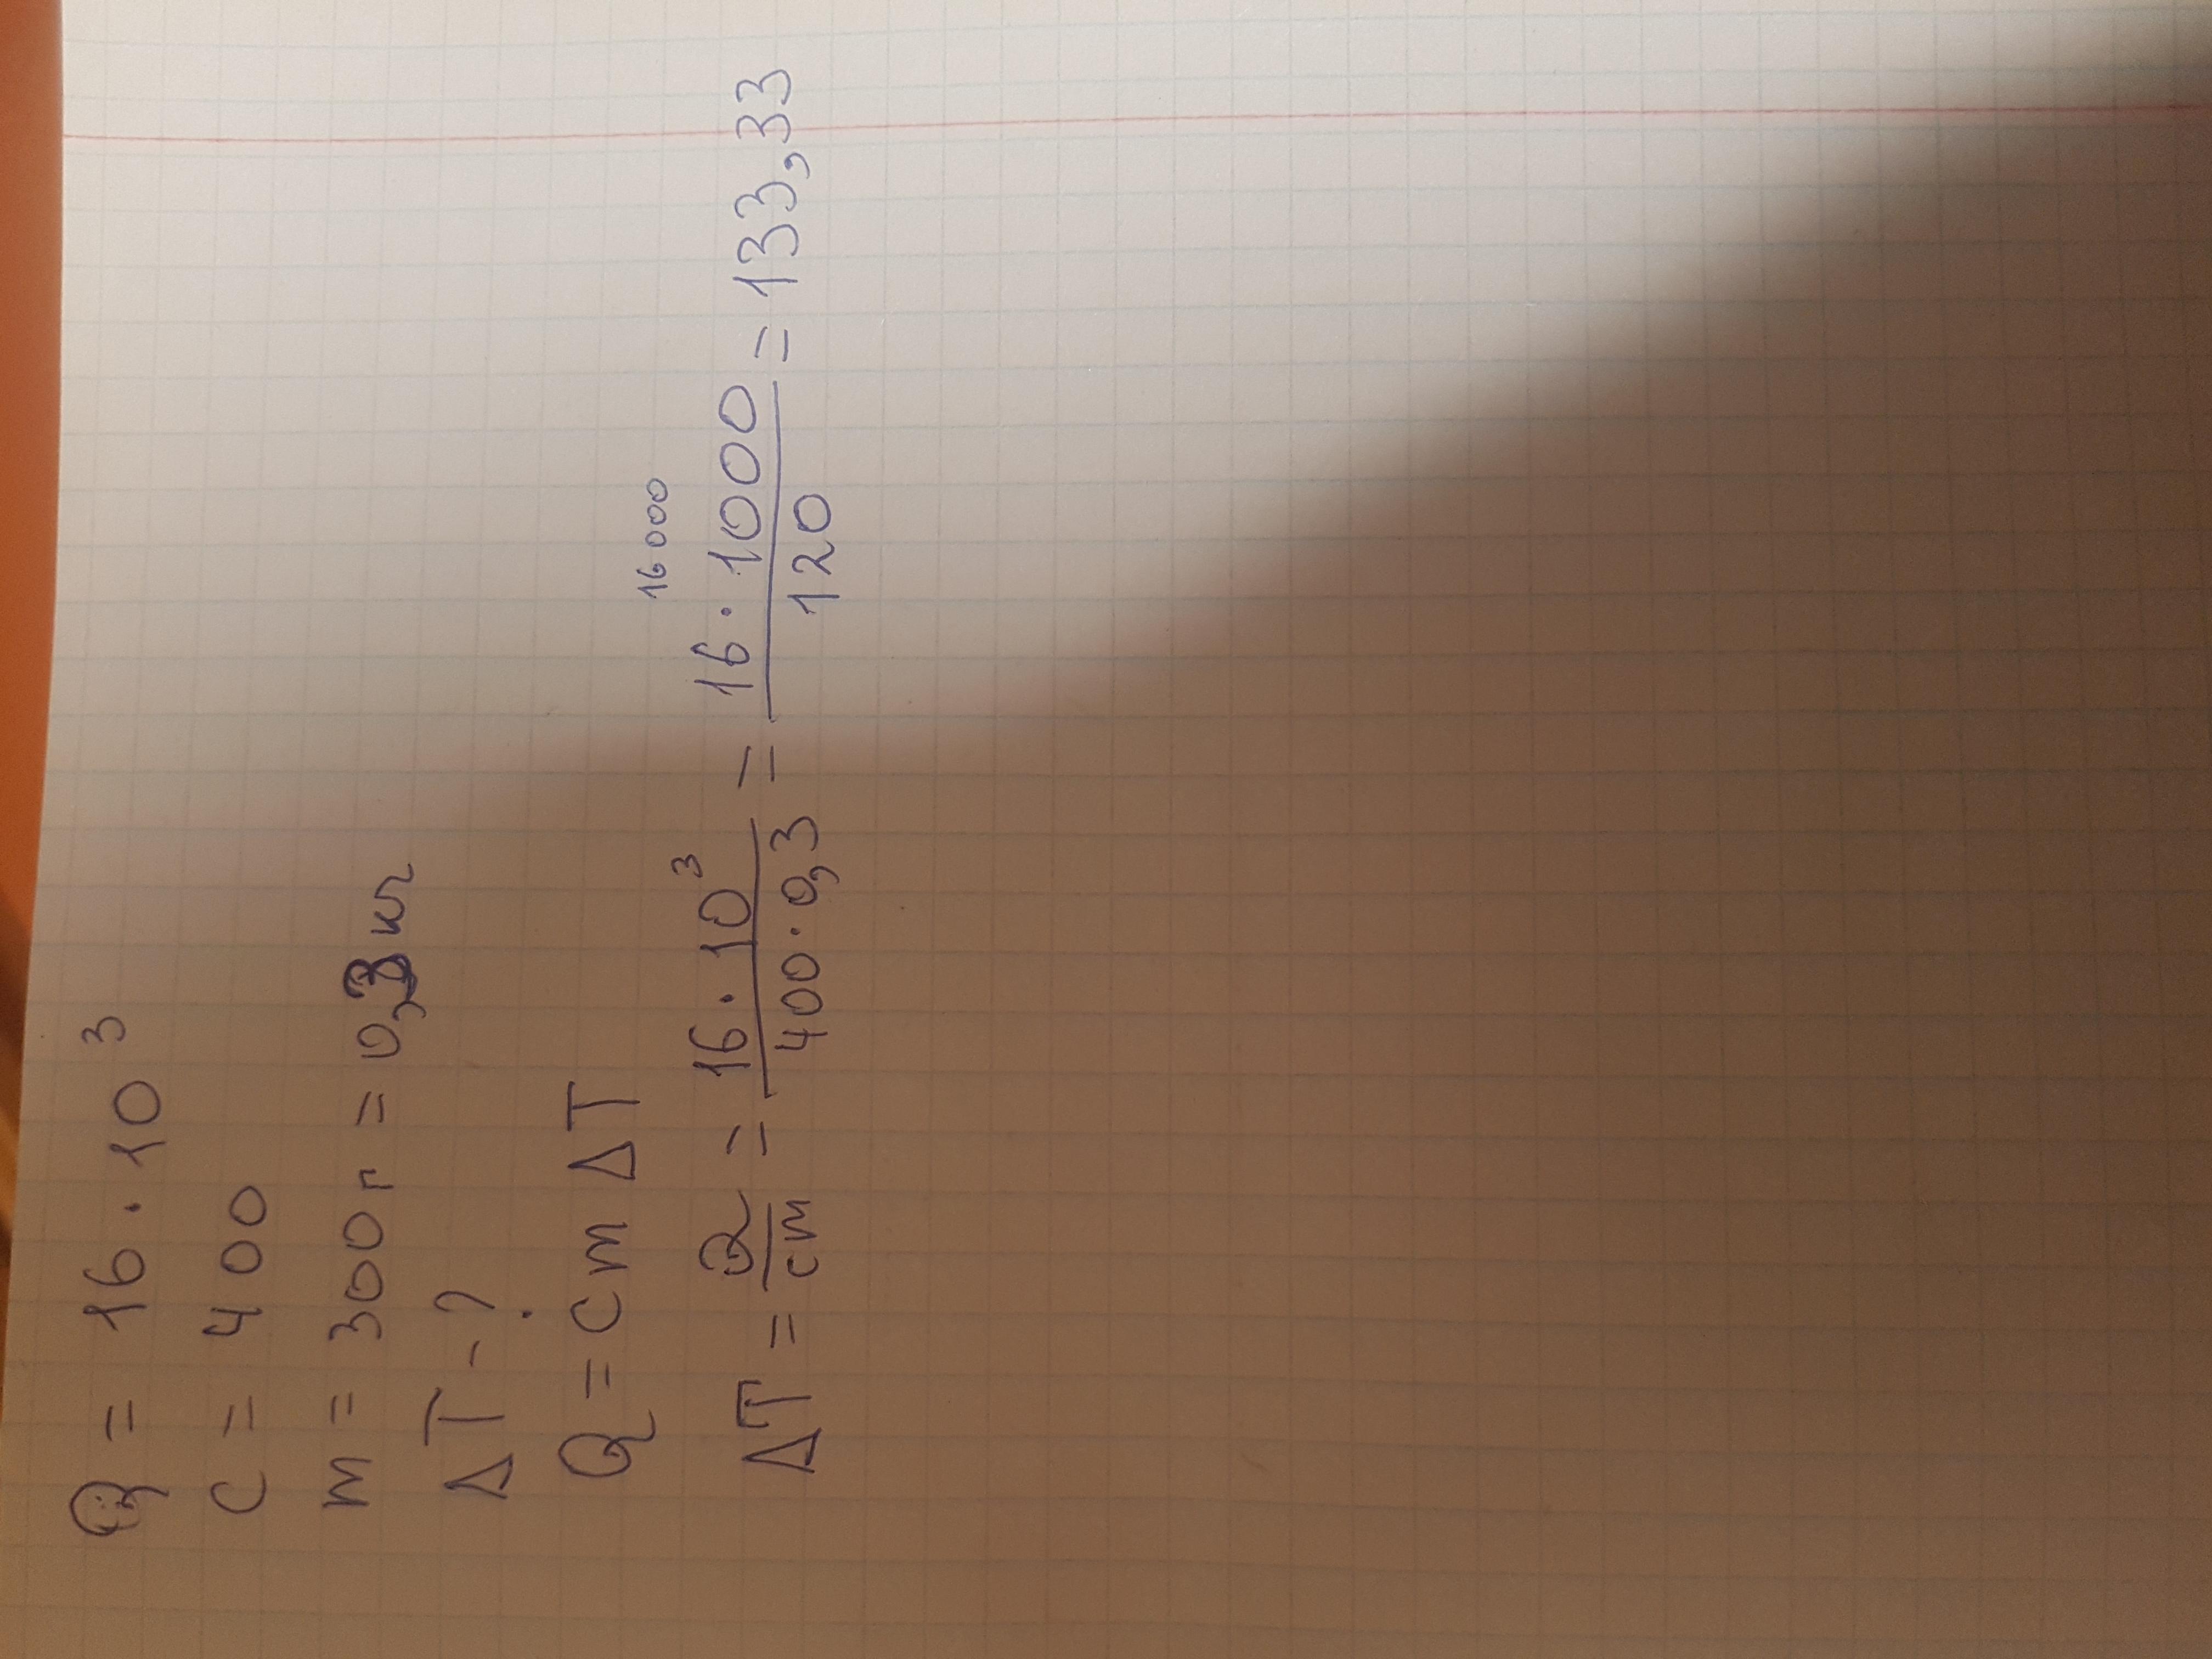 Q = 16 · 10³
c = 400
m = 300 г = 0,3 кг
ΔT - ?
Q = c m ΔT
16 000
ΔT = Q/cm = 16 · 10³/400 · 0,3 = 16 · 1000/120 = 133,33